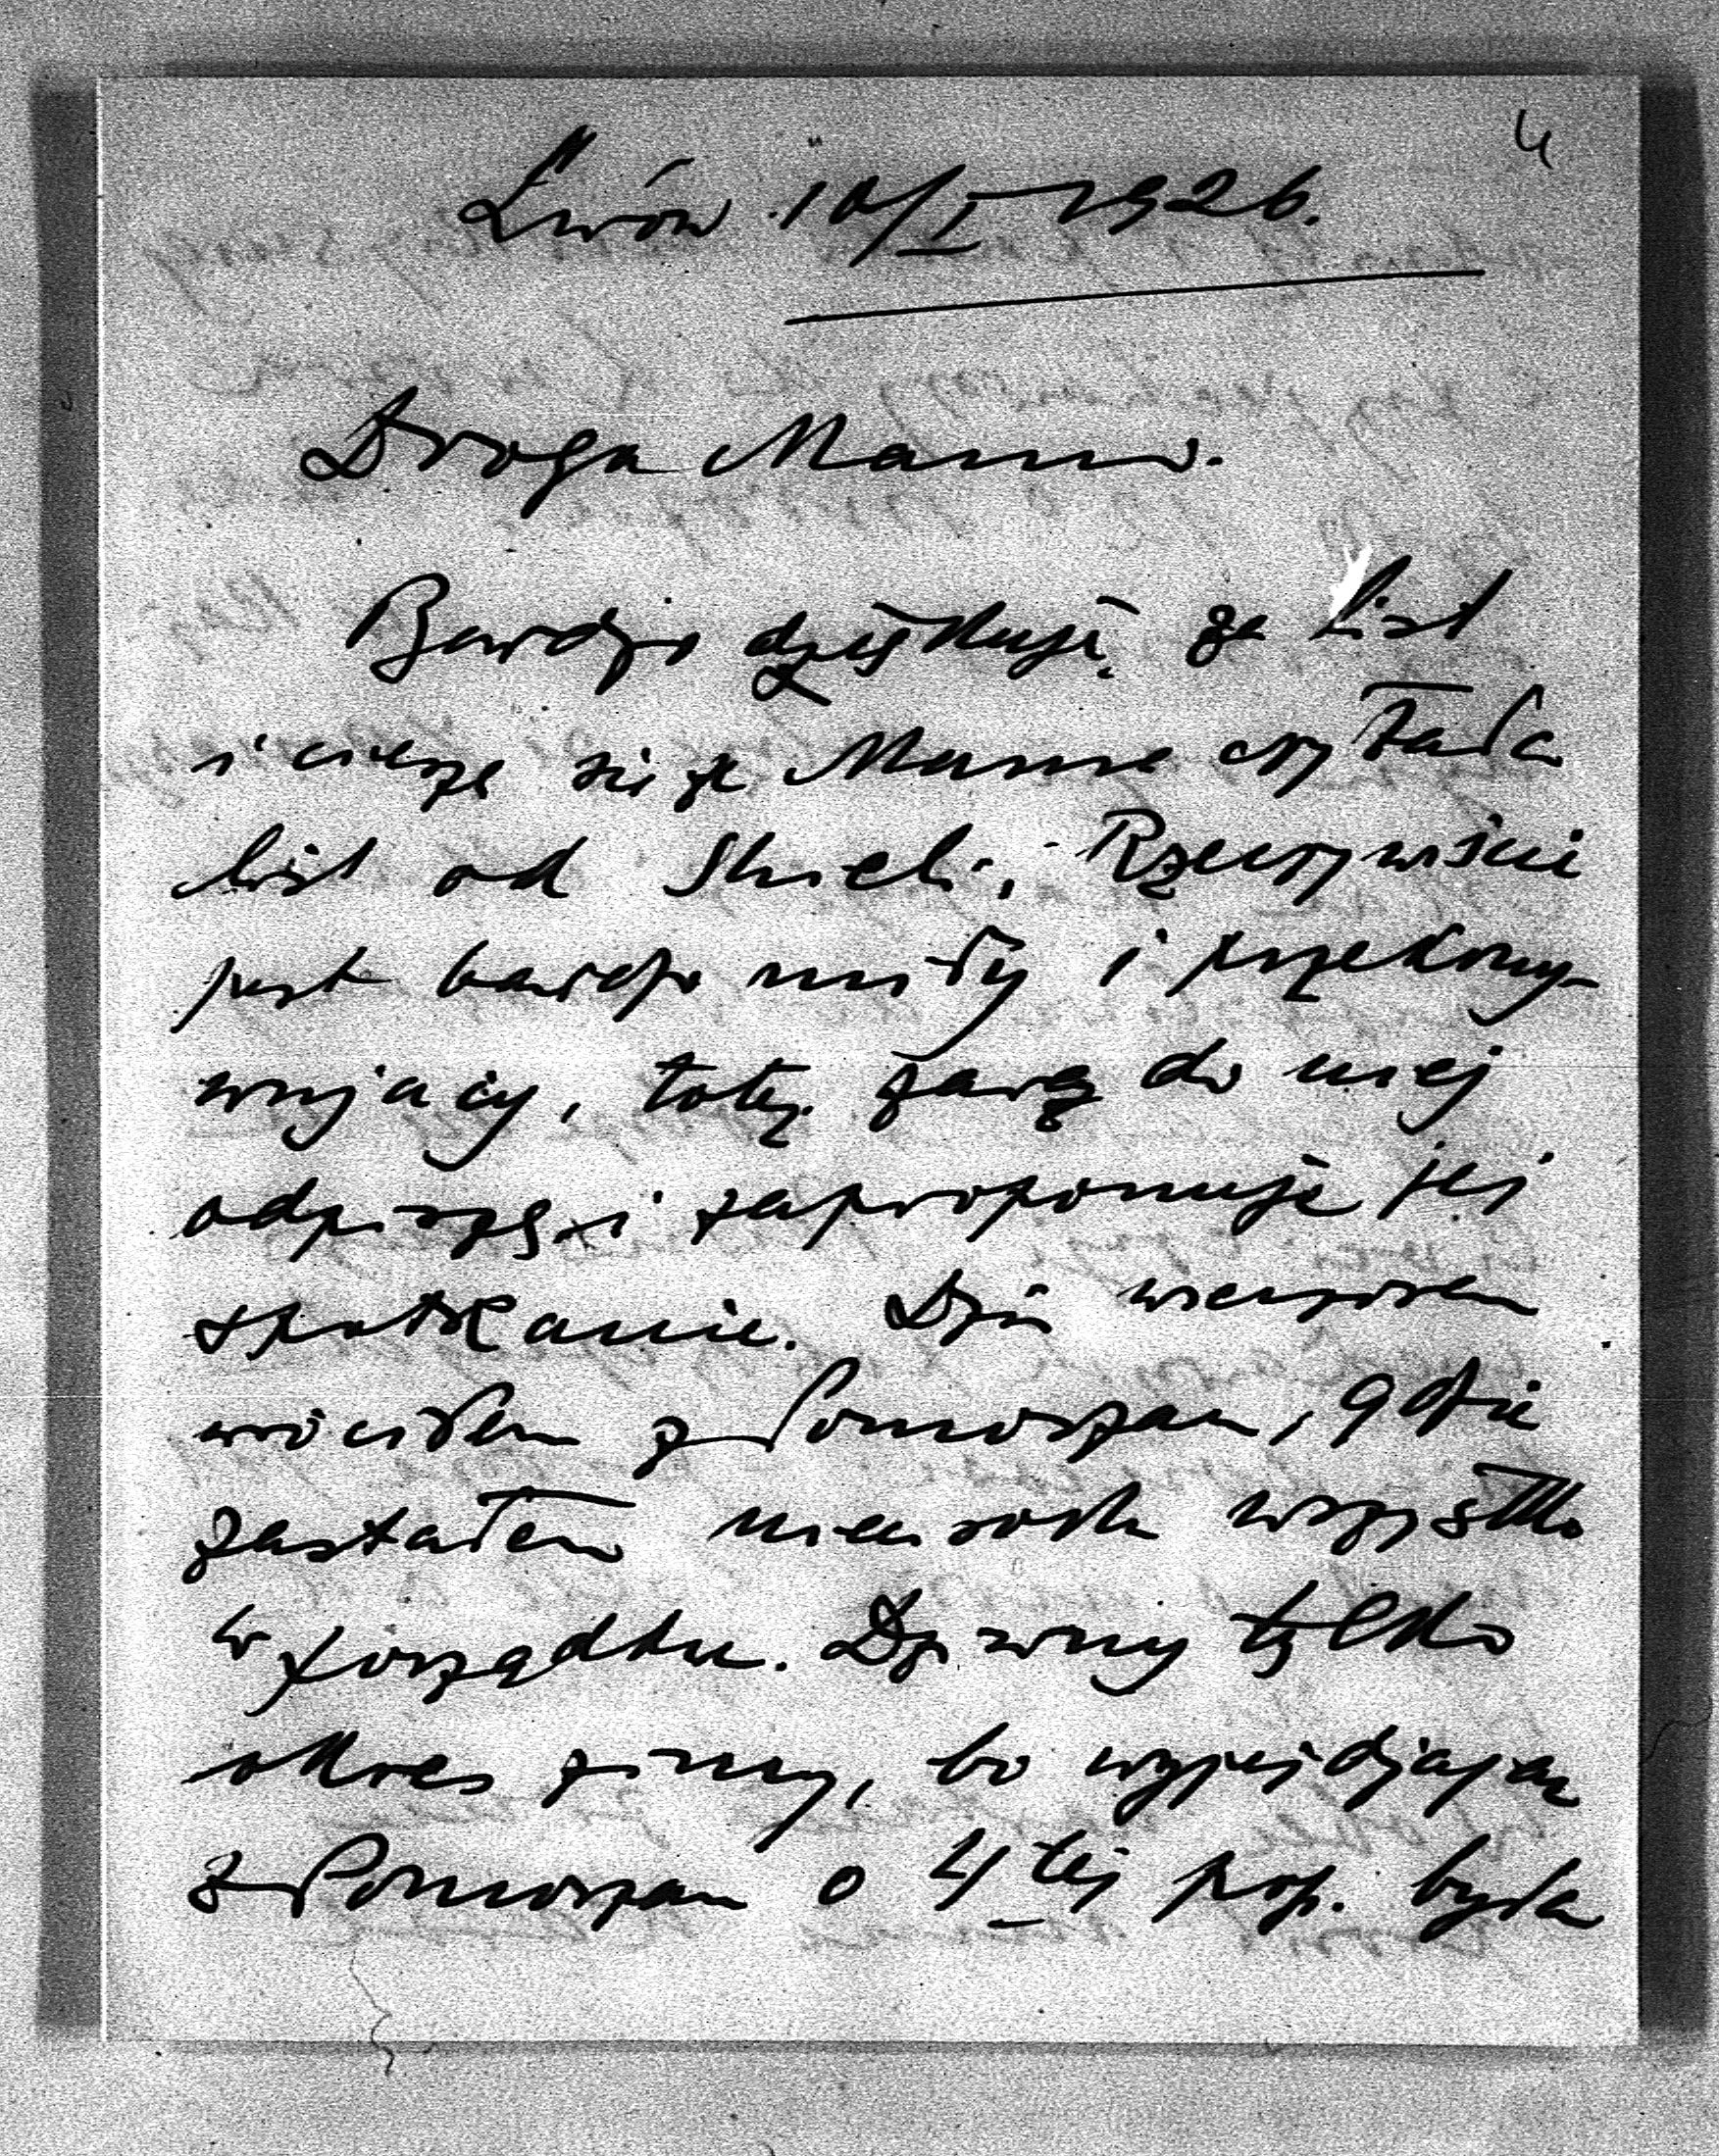 4
Lwów 10/I 1926.
Droga Mamo.
Bardzo dziękuję za list
i cieszę się że Mama czytała
list od Rzeczywiście
jest bardzo miły i przekony-
wujący, toteż zaraz do niej
odpiszę i zaproponuję jej
spotkanie. Dziś wieczorem
wróciłem z Pomorzan, gdzie
zastałem wszystko
w porządku. Dziwny tylko
okres zimy, bo wyjeżdżając
z Pomorzan o 4 tej pop. była